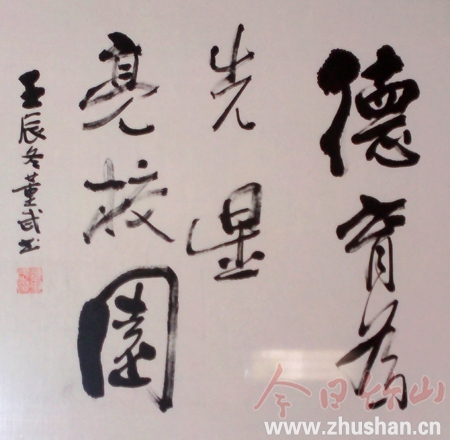 德育为
先星
亮校園
壬辰冬董武书
今日竹山
www.zhushan.cn